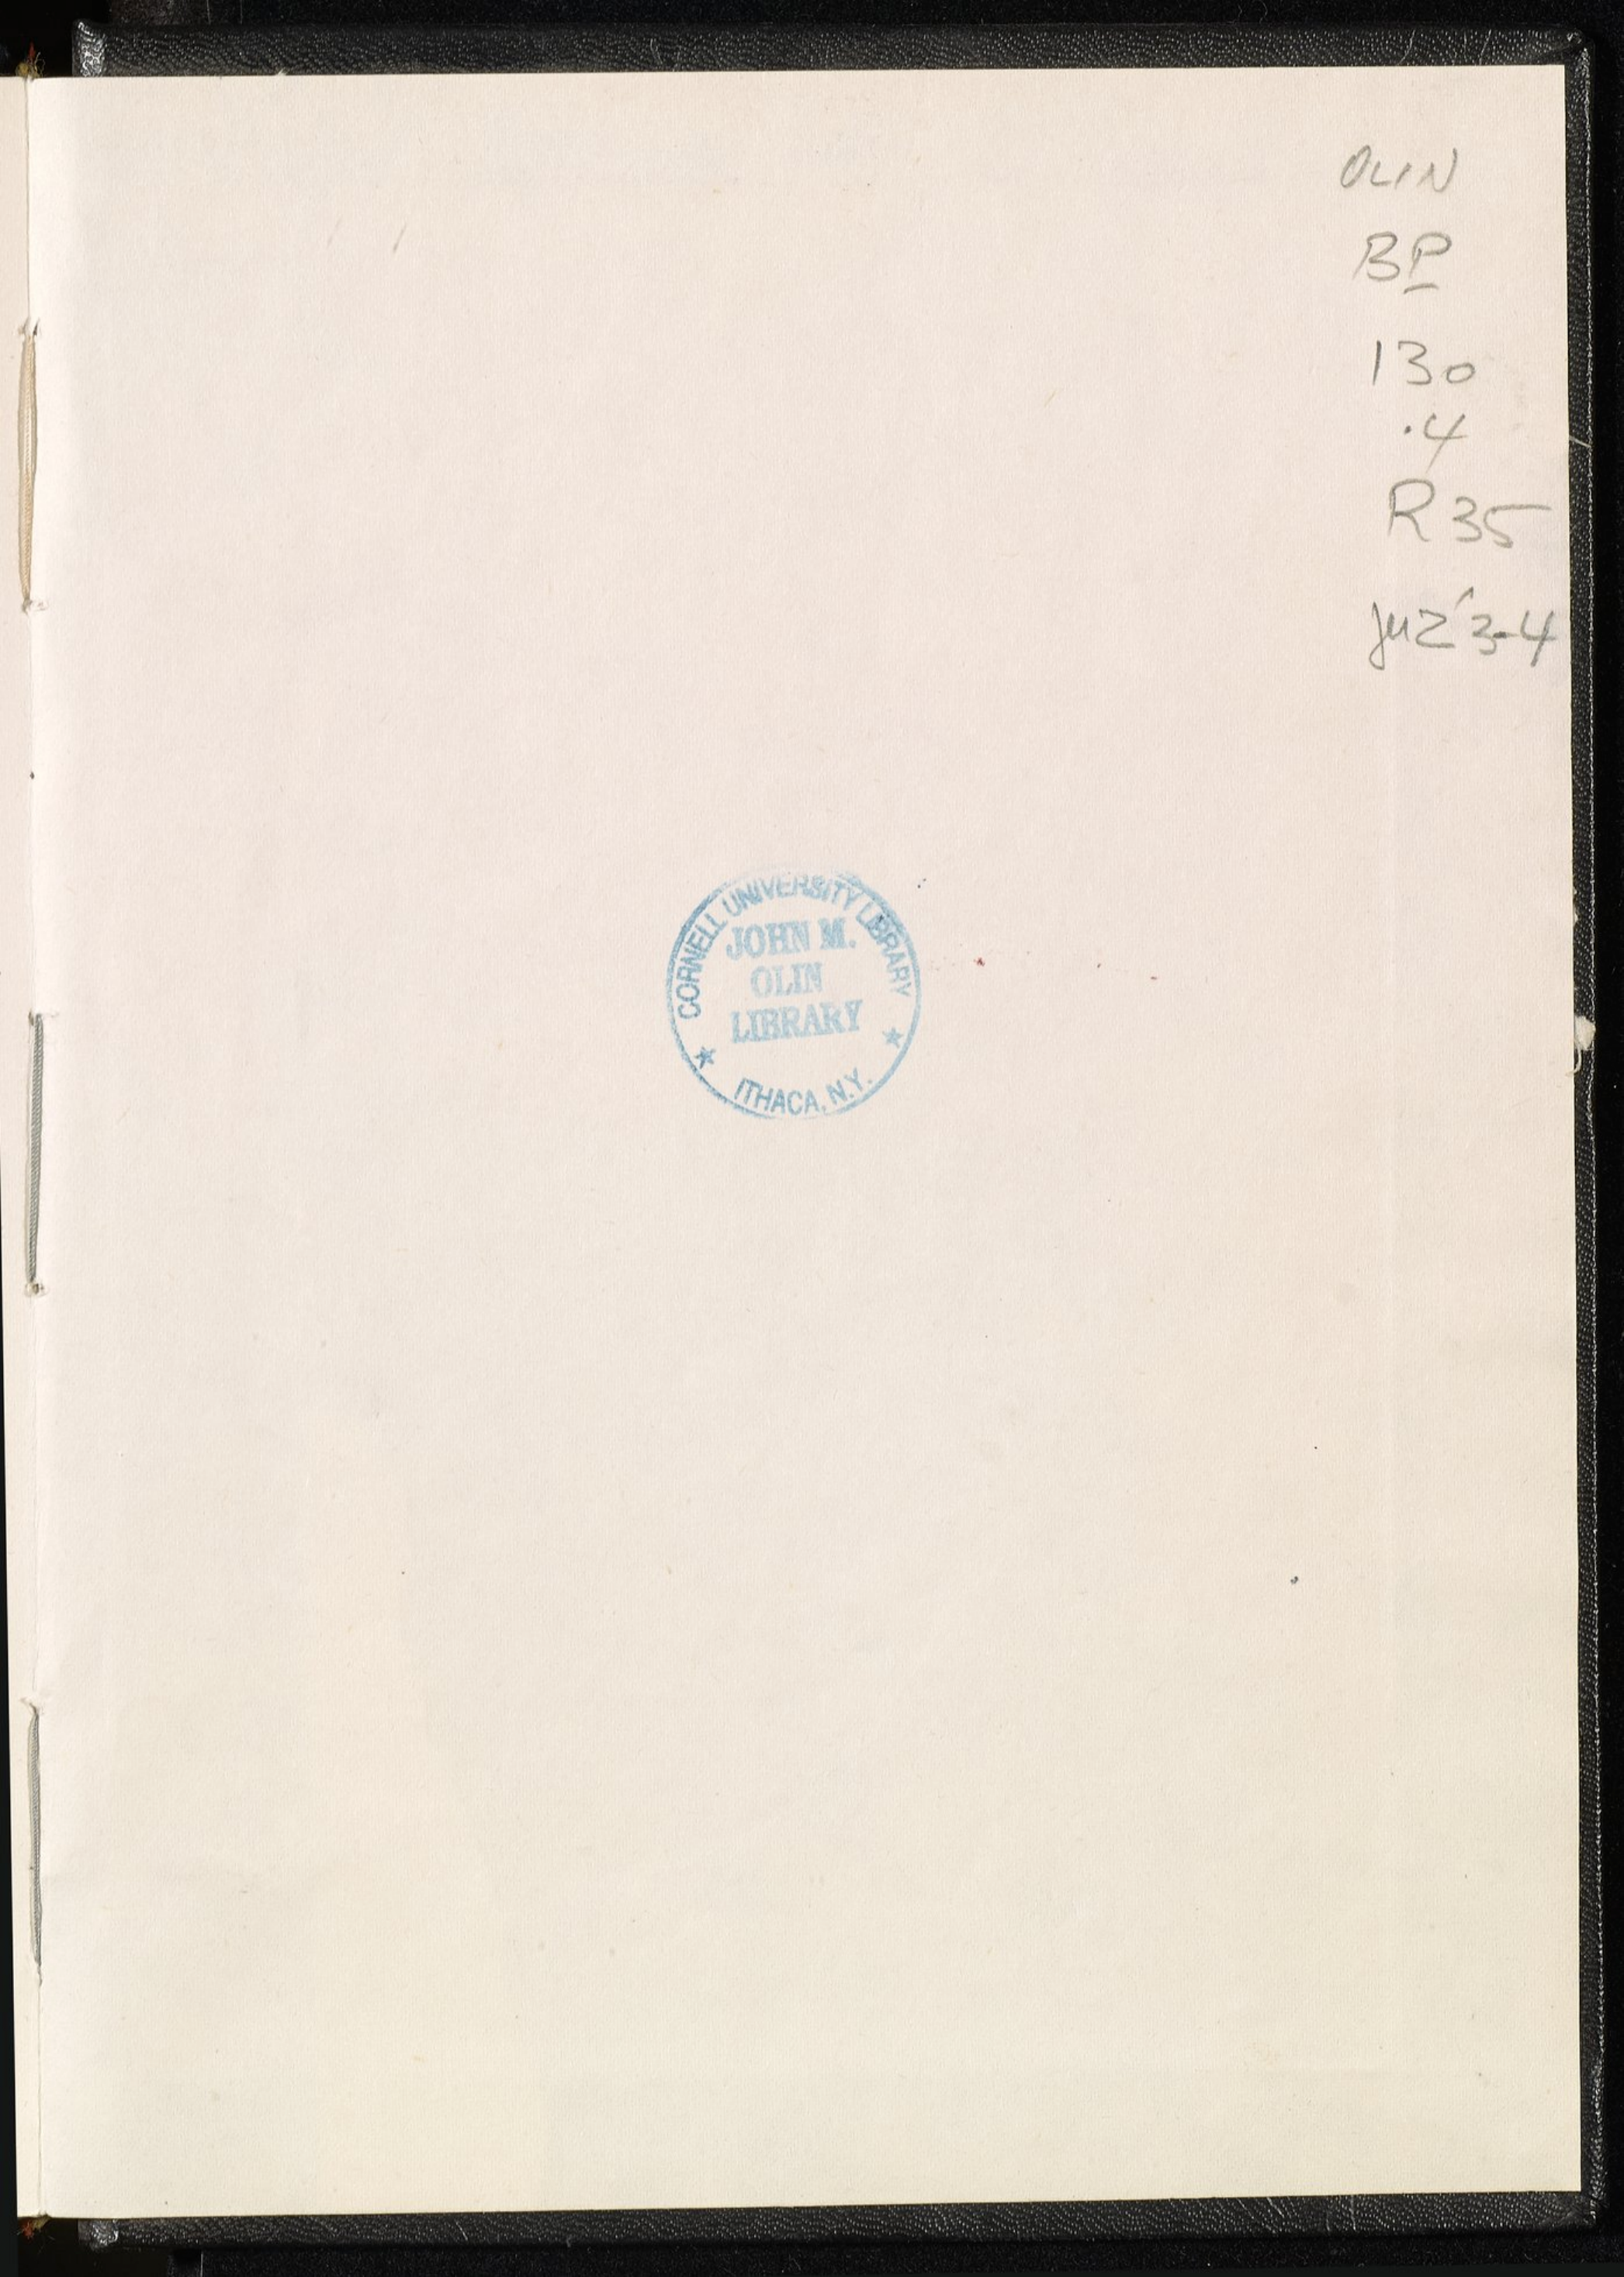 OLIN
BP
130
.4
R35
juz' 3-4
CORNELL UNIVERSITY LIBRARY
JOHN M.
OLIN
LIBRARY
★ ITHACA, N.Y. ★